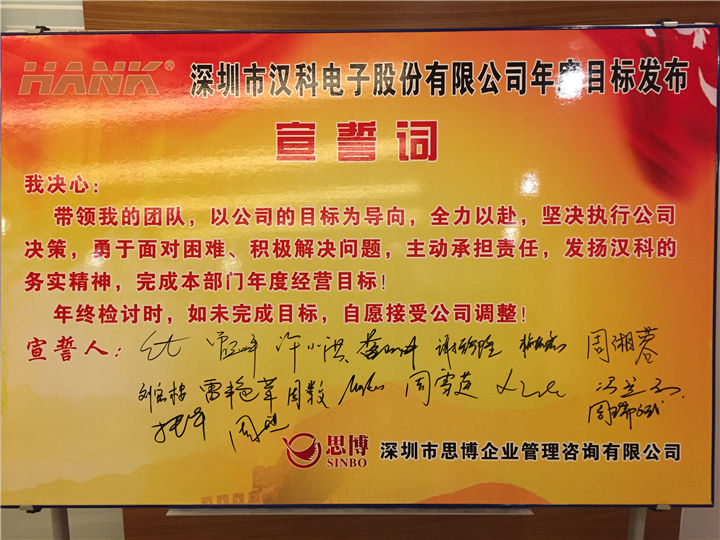 HANK® 深圳市汉科电子股份有限公司年度目标发布
宣誓词
我决心：
带领我的团队，以公司的目标为导向，全力以赴，坚决执行公司
决策，勇于面对困难、积极解决问题，主动承担责任，发扬汉科的
务实精神，完成本部门年度经营目标！
年终检讨时，如未完成目标，自愿接受公司调整！
宣誓人： 许小洪 周湘蓉
雷艳苹 周毅 周雪莲
思博
SINBO 深圳市思博企业管理咨询有限公司